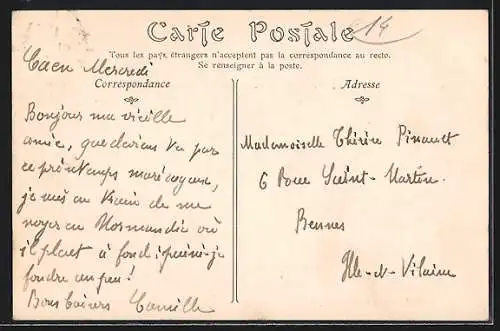 Carte Postale
14
Tous les pays étrangers n'acceptent pas la correspondance au recto.
Se renseigner à la poste.
Caen Mercredi
Correspondance
Bonjour ma vieille
amie, que deviens tu par
ce printemps marécageux,
je suis en train de me
noyer en Normandie où
il pleut à fond; puissé-je
fondre un peu!
Bons baisers Camille
Adresse
Mademoiselle Thérèse
6 Rue Saint-Martin
Rennes
Ille-et-Vilaine